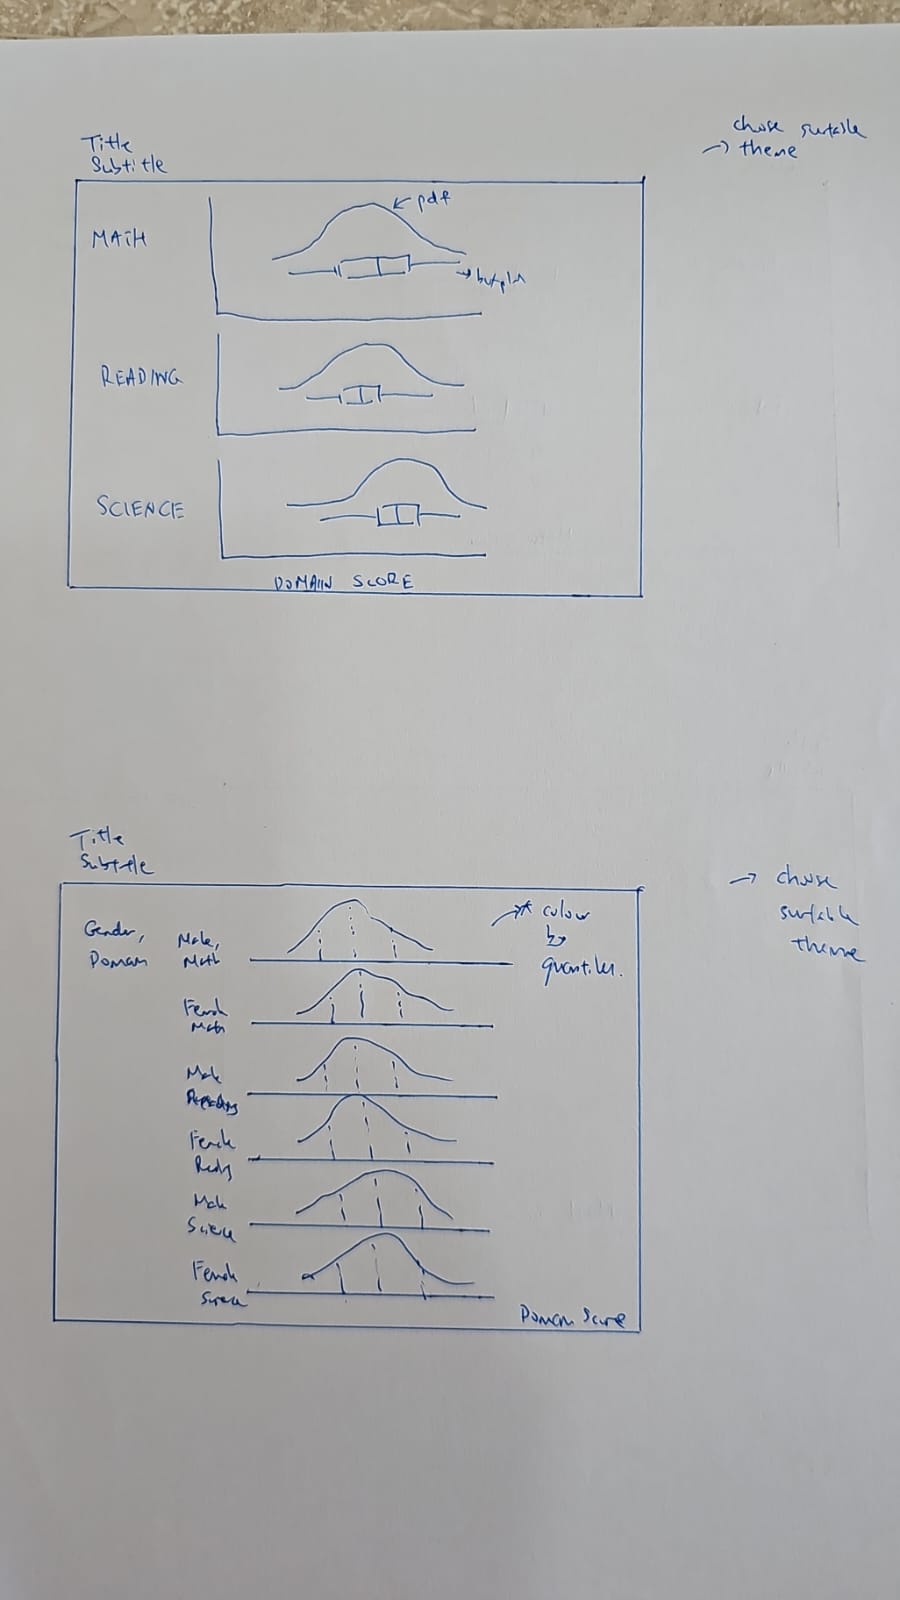 Title
Subtitle
chose suitable
→ theme
MATH
← pdf
→ boxplot
READING
SCIENCE
DOMAIN SCORE
Title
Subtitle
→ choose
suitable
theme
Gender,
Domain
Male,
Math
* colour
by
quantiles.
Female
Math
Male
Reading
Female
Readg
Male
Science
Female
Science
Domain Score